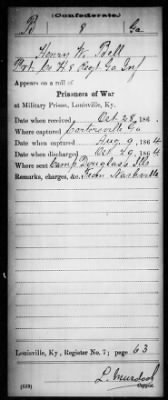 (Confederate.)
B 8 Ga
Henry W. Bell
Pvt. Co H. 8 Regt Ga Inf
Appears on a roll of
Prisoners of War
at Military Prison, Louisville, Ky.
Date when received Oct 28, 186
Where captured Cartersville Ga
Date when captured Aug 9, 1864
Date when discharged Oct 29, 1864
Where sent Camp Douglass Ills
Remarks, charges, &c. From Nashville
Louisville, Ky., Register No. 7; page 63
(639)
L. Murdock
Copyist.